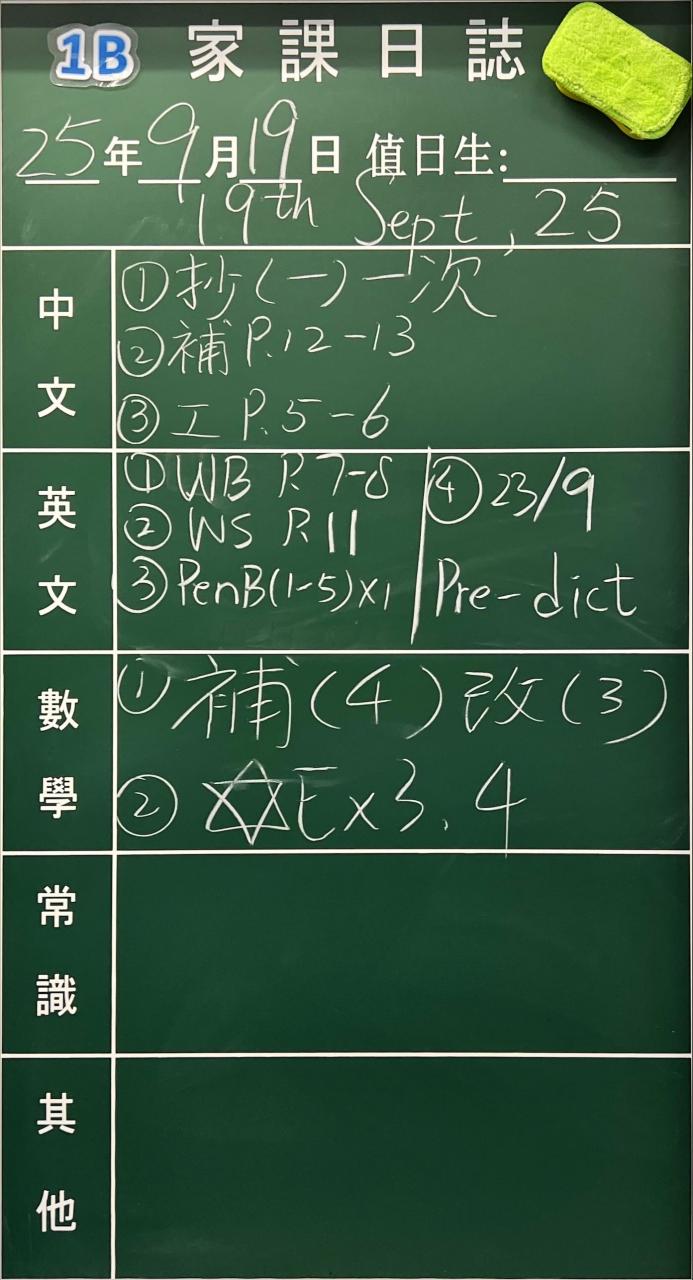 1B 家課日誌
25年9月19日 值日生:
19th Sept, 25
中文
①抄(一)一次
②補 P.12-13
③工 P.5-6
英文
①WB P.7-8
②WS P.11
③PenB(1-5)x1
④23/9
Pre-dict
數學
①補(4)改(3)
②✡Ex3.4
常識
其他